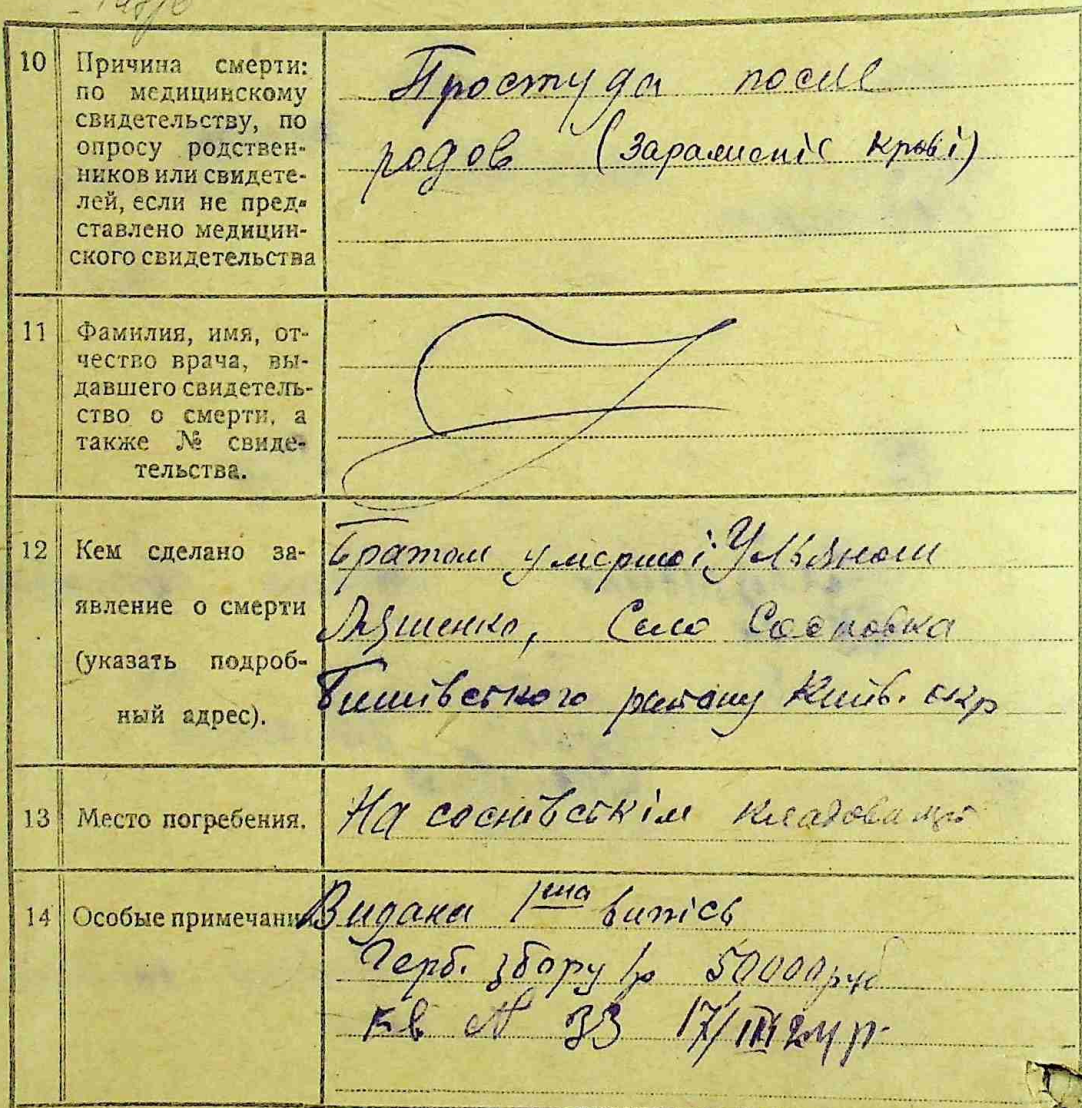 10 Причина смерти:
по медицинскому
свидетельству, по
опросу родствен-
ников или свидете-
лей, если не пред-
ставлено медицин-
ского свидетельства
Простуда после
родов (Зараженіе крові)
11 Фамилия, имя, от-
чество врача, вы-
давшего свидетель-
ство о смерти, а
также № свиде-
тельства.
12 Кем сделано за-
явление о смерти
(указать подроб-
ный адрес).
Братом умершої Ульяном
Ляшенко, Село Сосновка
району Київ. окр
13 Место погребения.
На соснівскім кладовищі
14 Особые примечания
Видана 1ша випісь
Герб. збору 1р 50000руб
кв № 33 17/III 24 р.